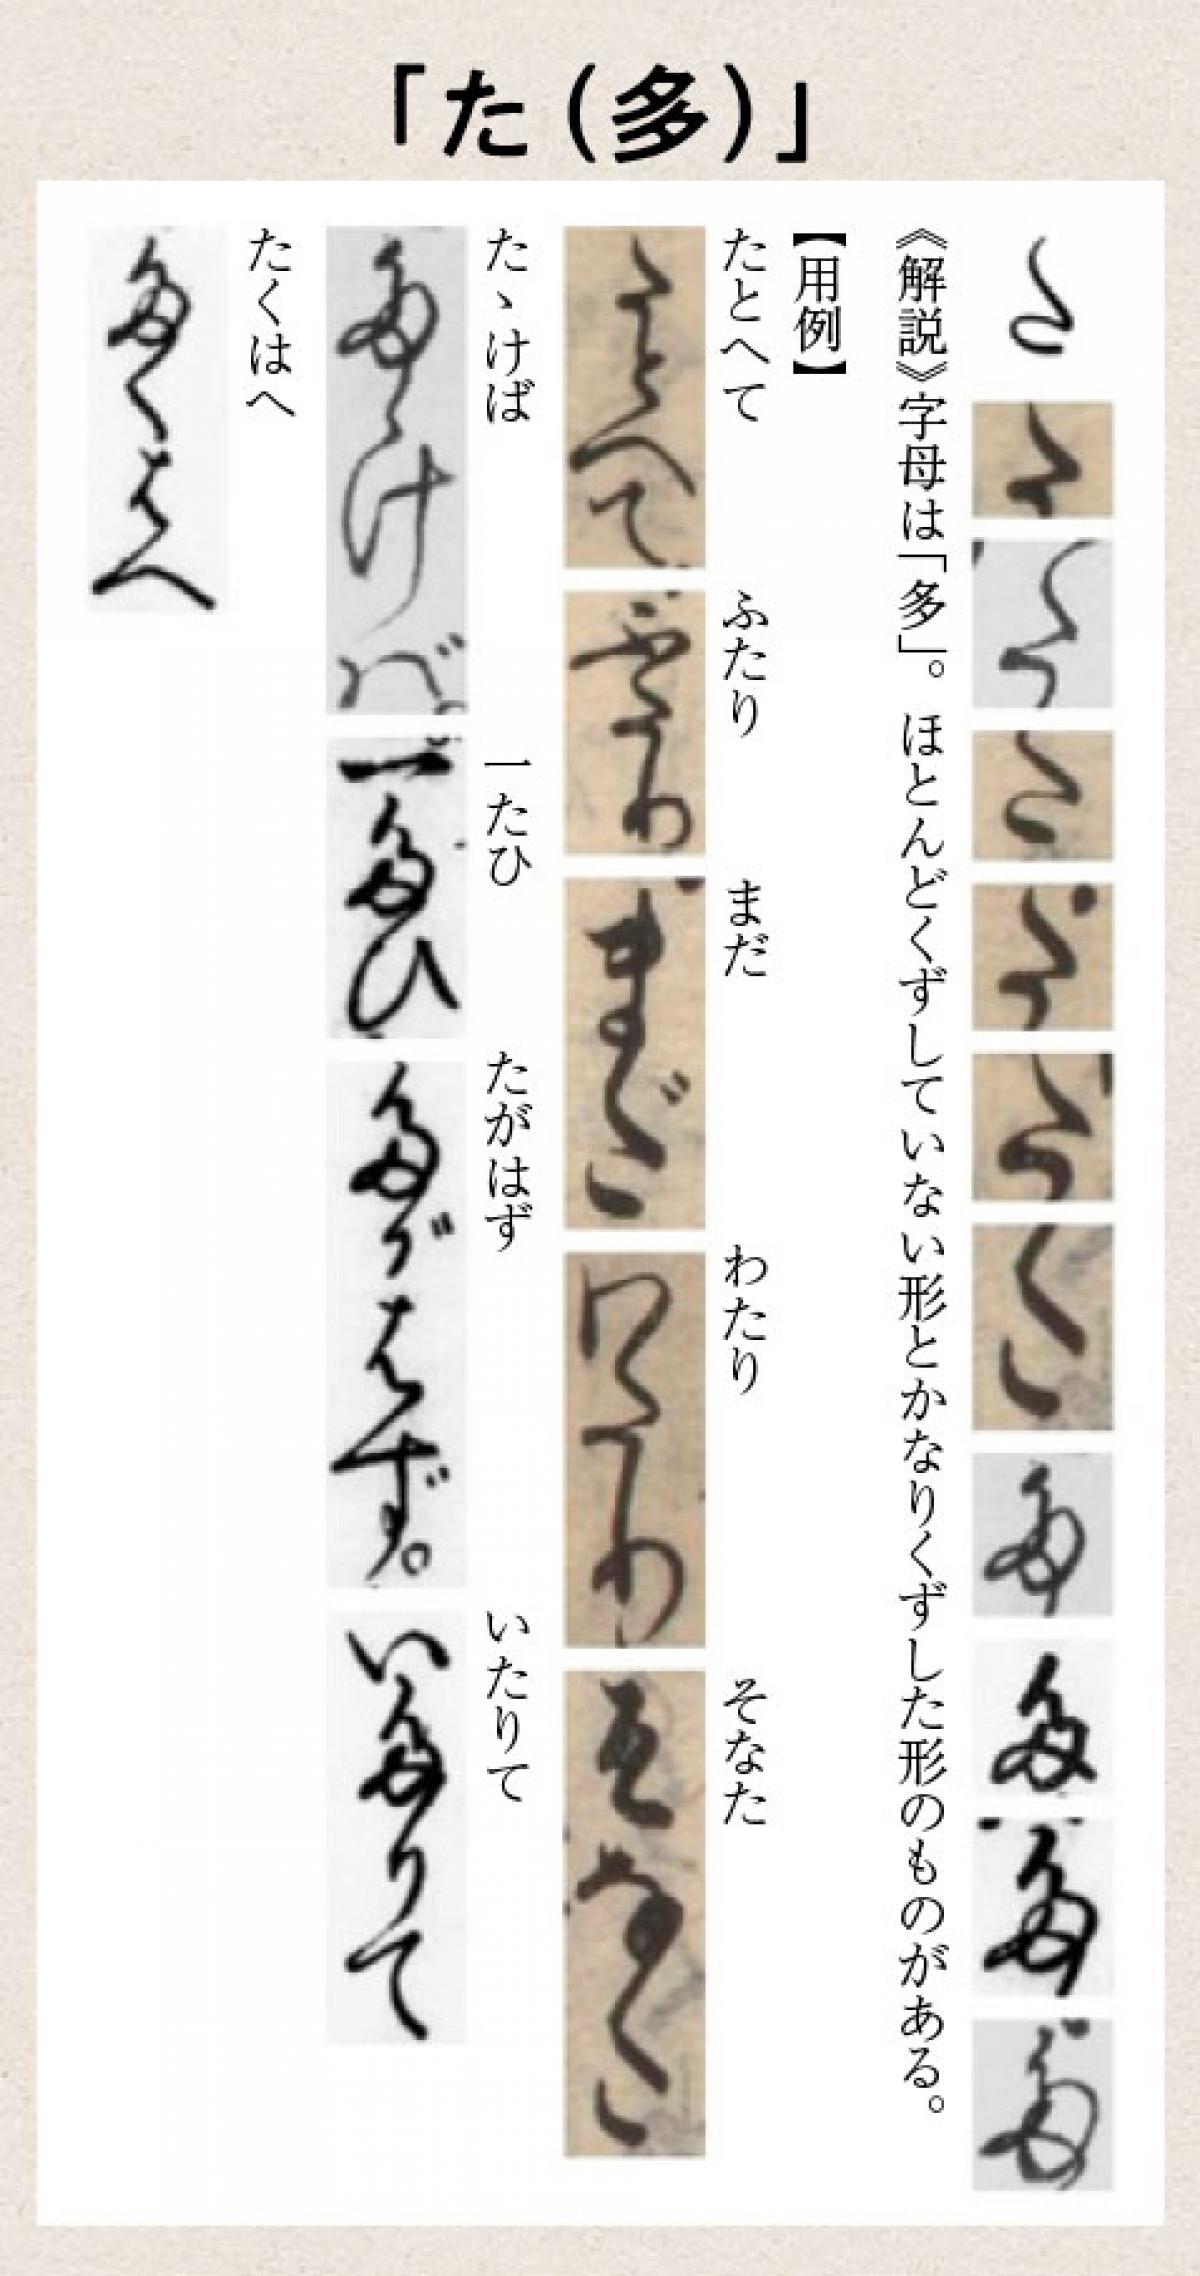 「た(多)」
《解説》字母は「多」。ほとんどくずしていない形とかなりくずした形のものがある。
【用例】
たとへて ふたり まだ わたり そなた
たゝけば 一たひ たがはず いたりて
たくはへ